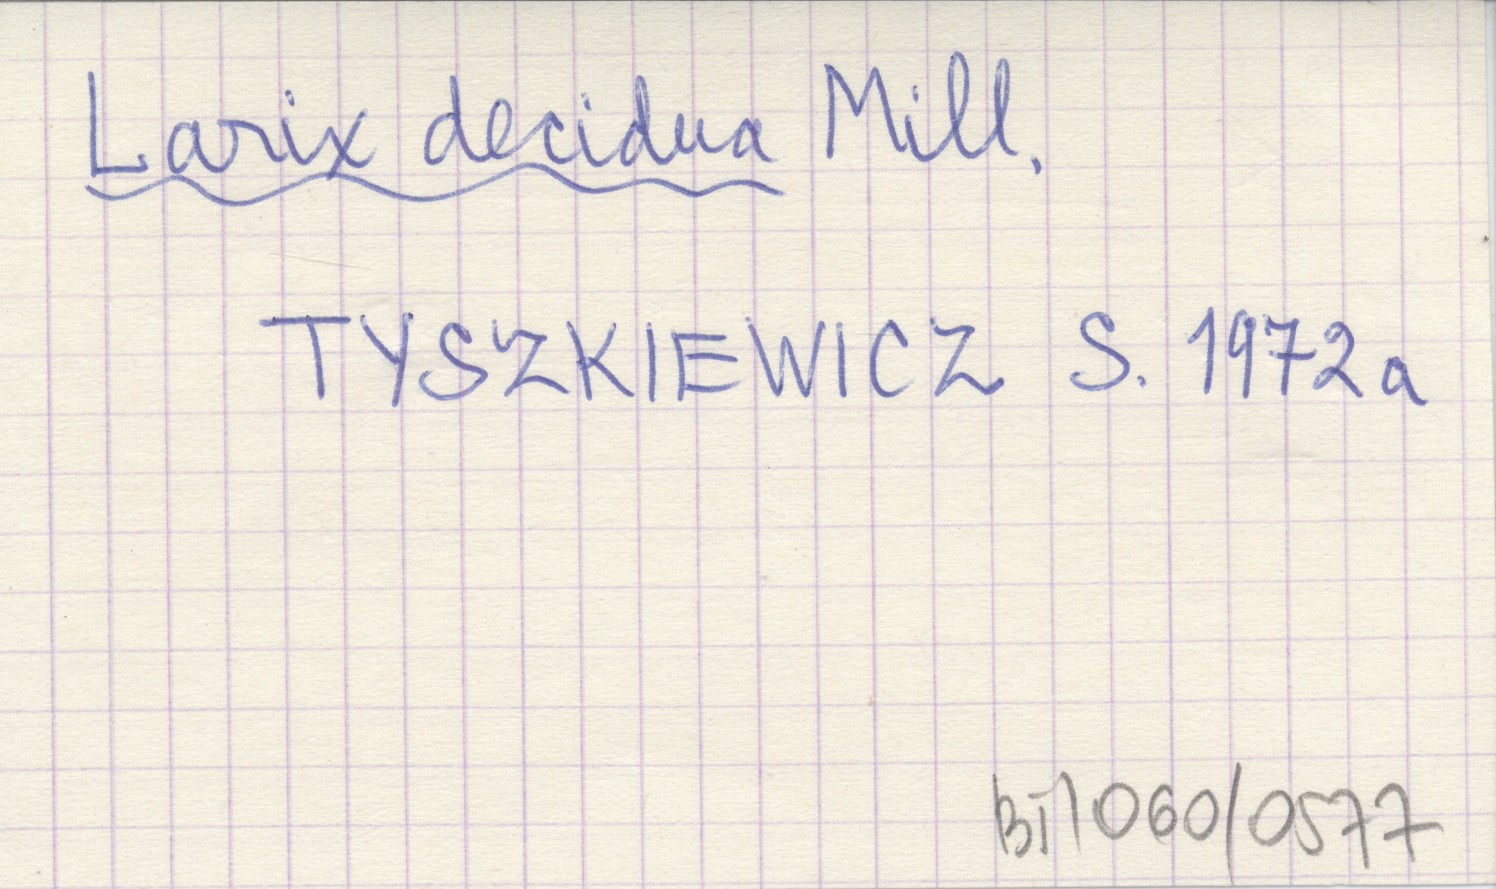 Larix decidua Mill.
TYSZKIEWICZ S. 1972a
BI/060/0577